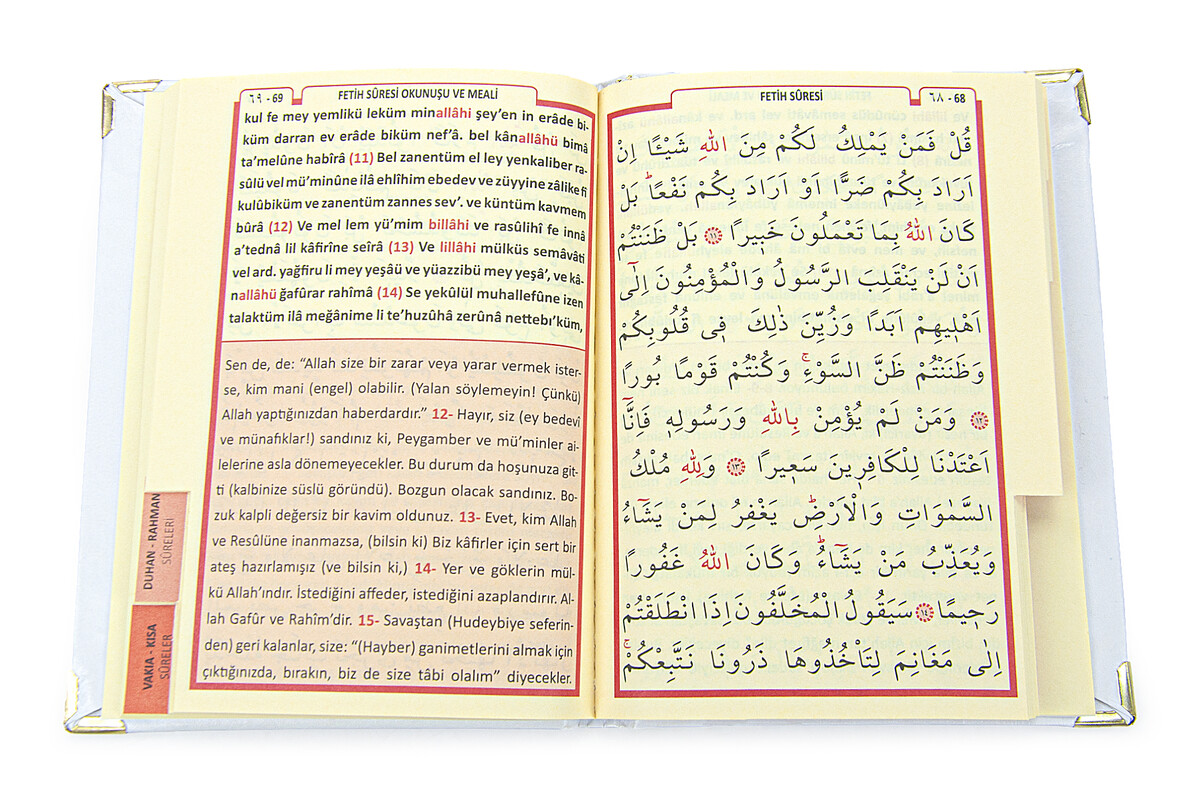 ٦٩ - 69
FETİH SÛRESİ OKUNUŞU VE MEALİ
kul fe mey yemlikü leküm minallâhi şey'en in erâde bi-
küm darran ev erâde biküm nef'â. bel kânallâhü bimâ
ta'melûne habîrâ (11) Bel zanentüm el ley yenkaliber ra-
sûlü vel mü'minûne ilâ ehlîhim ebedev ve züyyine zâlike fî
kulûbiküm ve zanentüm zannes sev'. ve küntüm kavmem
bûrâ (12) Ve mel lem yü'mim billâhi ve rasûlihî fe innâ
a'tednâ lil kâfirîne seîrâ (13) Ve lillâhi mülküs semâvâti
vel ard. yağfiru li mey yeşâü ve yüazzibü mey yeşâ', ve kâ-
nallâhü ğafûrar rahîmâ (14) Se yekûlül muhallefûne izen
talaktüm ilâ meğânime li te'huzûhâ zerûnâ nettebı'küm,
Sen de, de: “Allah size bir zarar veya yarar vermek ister-
se, kim mani (engel) olabilir. (Yalan söylemeyin! Çünkü)
Allah yaptığınızdan haberdardır.” 12- Hayır, siz (ey bedevî
ve münafıklar!) sandınız ki, Peygamber ve mü'minler ai-
lelerine asla dönemeyecekler. Bu durum da hoşunuza git-
ti (kalbinize süslü göründü). Bozgun olacak sandınız. Bo-
zuk kalpli değersiz bir kavim oldunuz. 13- Evet, kim Allah
ve Resûlüne inanmazsa, (bilsin ki) Biz kâfirler için sert bir
ateş hazırlamışız (ve bilsin ki,) 14- Yer ve göklerin mül-
kü Allah'ındır. İstediğini affeder, istediğini azaplandırır. Al-
lah Gafûr ve Rahîm'dir. 15- Savaştan (Hudeybiye seferin-
den) geri kalanlar, size: “(Hayber) ganimetlerini almak için
çıktığınızda, bırakın, biz de size tâbi olalım” diyecekler.
DUHAN - RAHMAN
SÛRELERİ
VAKIA - KISA
SÛRELER
FETİH SÛRESİ
٦٨ - 68
قُلْ فَمَنْ يَمْلِكُ لَكُمْ مِنَ اللّٰهِ شَيْـًٔا اِنْ
اَرَادَ بِكُمْ ضَرًّا اَوْ اَرَادَ بِكُمْ نَفْعًاۜ بَلْ
كَانَ اللّٰهُ بِمَا تَعْمَلُونَ خَبٖيرًا ﴿١١﴾ بَلْ ظَنَنْتُمْ
اَنْ لَنْ يَنْقَلِبَ الرَّسُولُ وَالْمُؤْمِنُونَ اِلٰٓى
اَهْلٖيهِمْ اَبَدًا وَزُيِّنَ ذٰلِكَ فٖي قُلُوبِكُمْ
وَظَنَنْتُمْ ظَنَّ السَّوْءِۚ وَكُنْتُمْ قَوْمًا بُورًا
﴿١٢﴾ وَمَنْ لَمْ يُؤْمِنْ بِاللّٰهِ وَرَسُولِهٖ فَاِنَّٓا
اَعْتَدْنَا لِلْكَافِرٖينَ سَعٖيرًا ﴿١٣﴾ وَلِلّٰهِ مُلْكُ
السَّمٰوَاتِ وَالْاَرْضِۜ يَغْفِرُ لِمَنْ يَشَٓاءُ
وَيُعَذِّبُ مَنْ يَشَٓاءُۜ وَكَانَ اللّٰهُ غَفُورًا
رَحٖيمًا ﴿١٤﴾ سَيَقُولُ الْمُخَلَّفُونَ اِذَا انْطَلَقْتُمْ
اِلٰى مَغَانِمَ لِتَأْخُذُوهَا ذَرُونَا نَتَّبِعْكُمْۚ